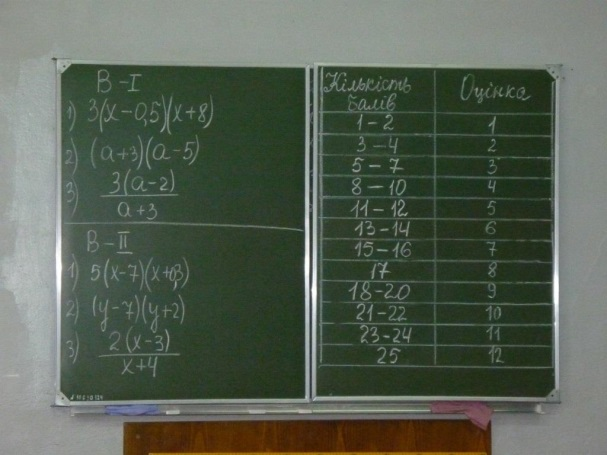 В-I
1) 3(x-0,5)(x+8)
2) (a+3)(a-5)
3) 3(a-2)
a+3
В-II
1) 5(x-7)(x+0,3)
2) (y-7)(y+2)
3) 2(x-3)
x+4
Кількість балів Оцінка
1-2 1
3-4 2
5-7 3
8-10 4
11-12 5
13-14 6
15-16 7
17 8
18-20 9
21-22 10
23-24 11
25 12